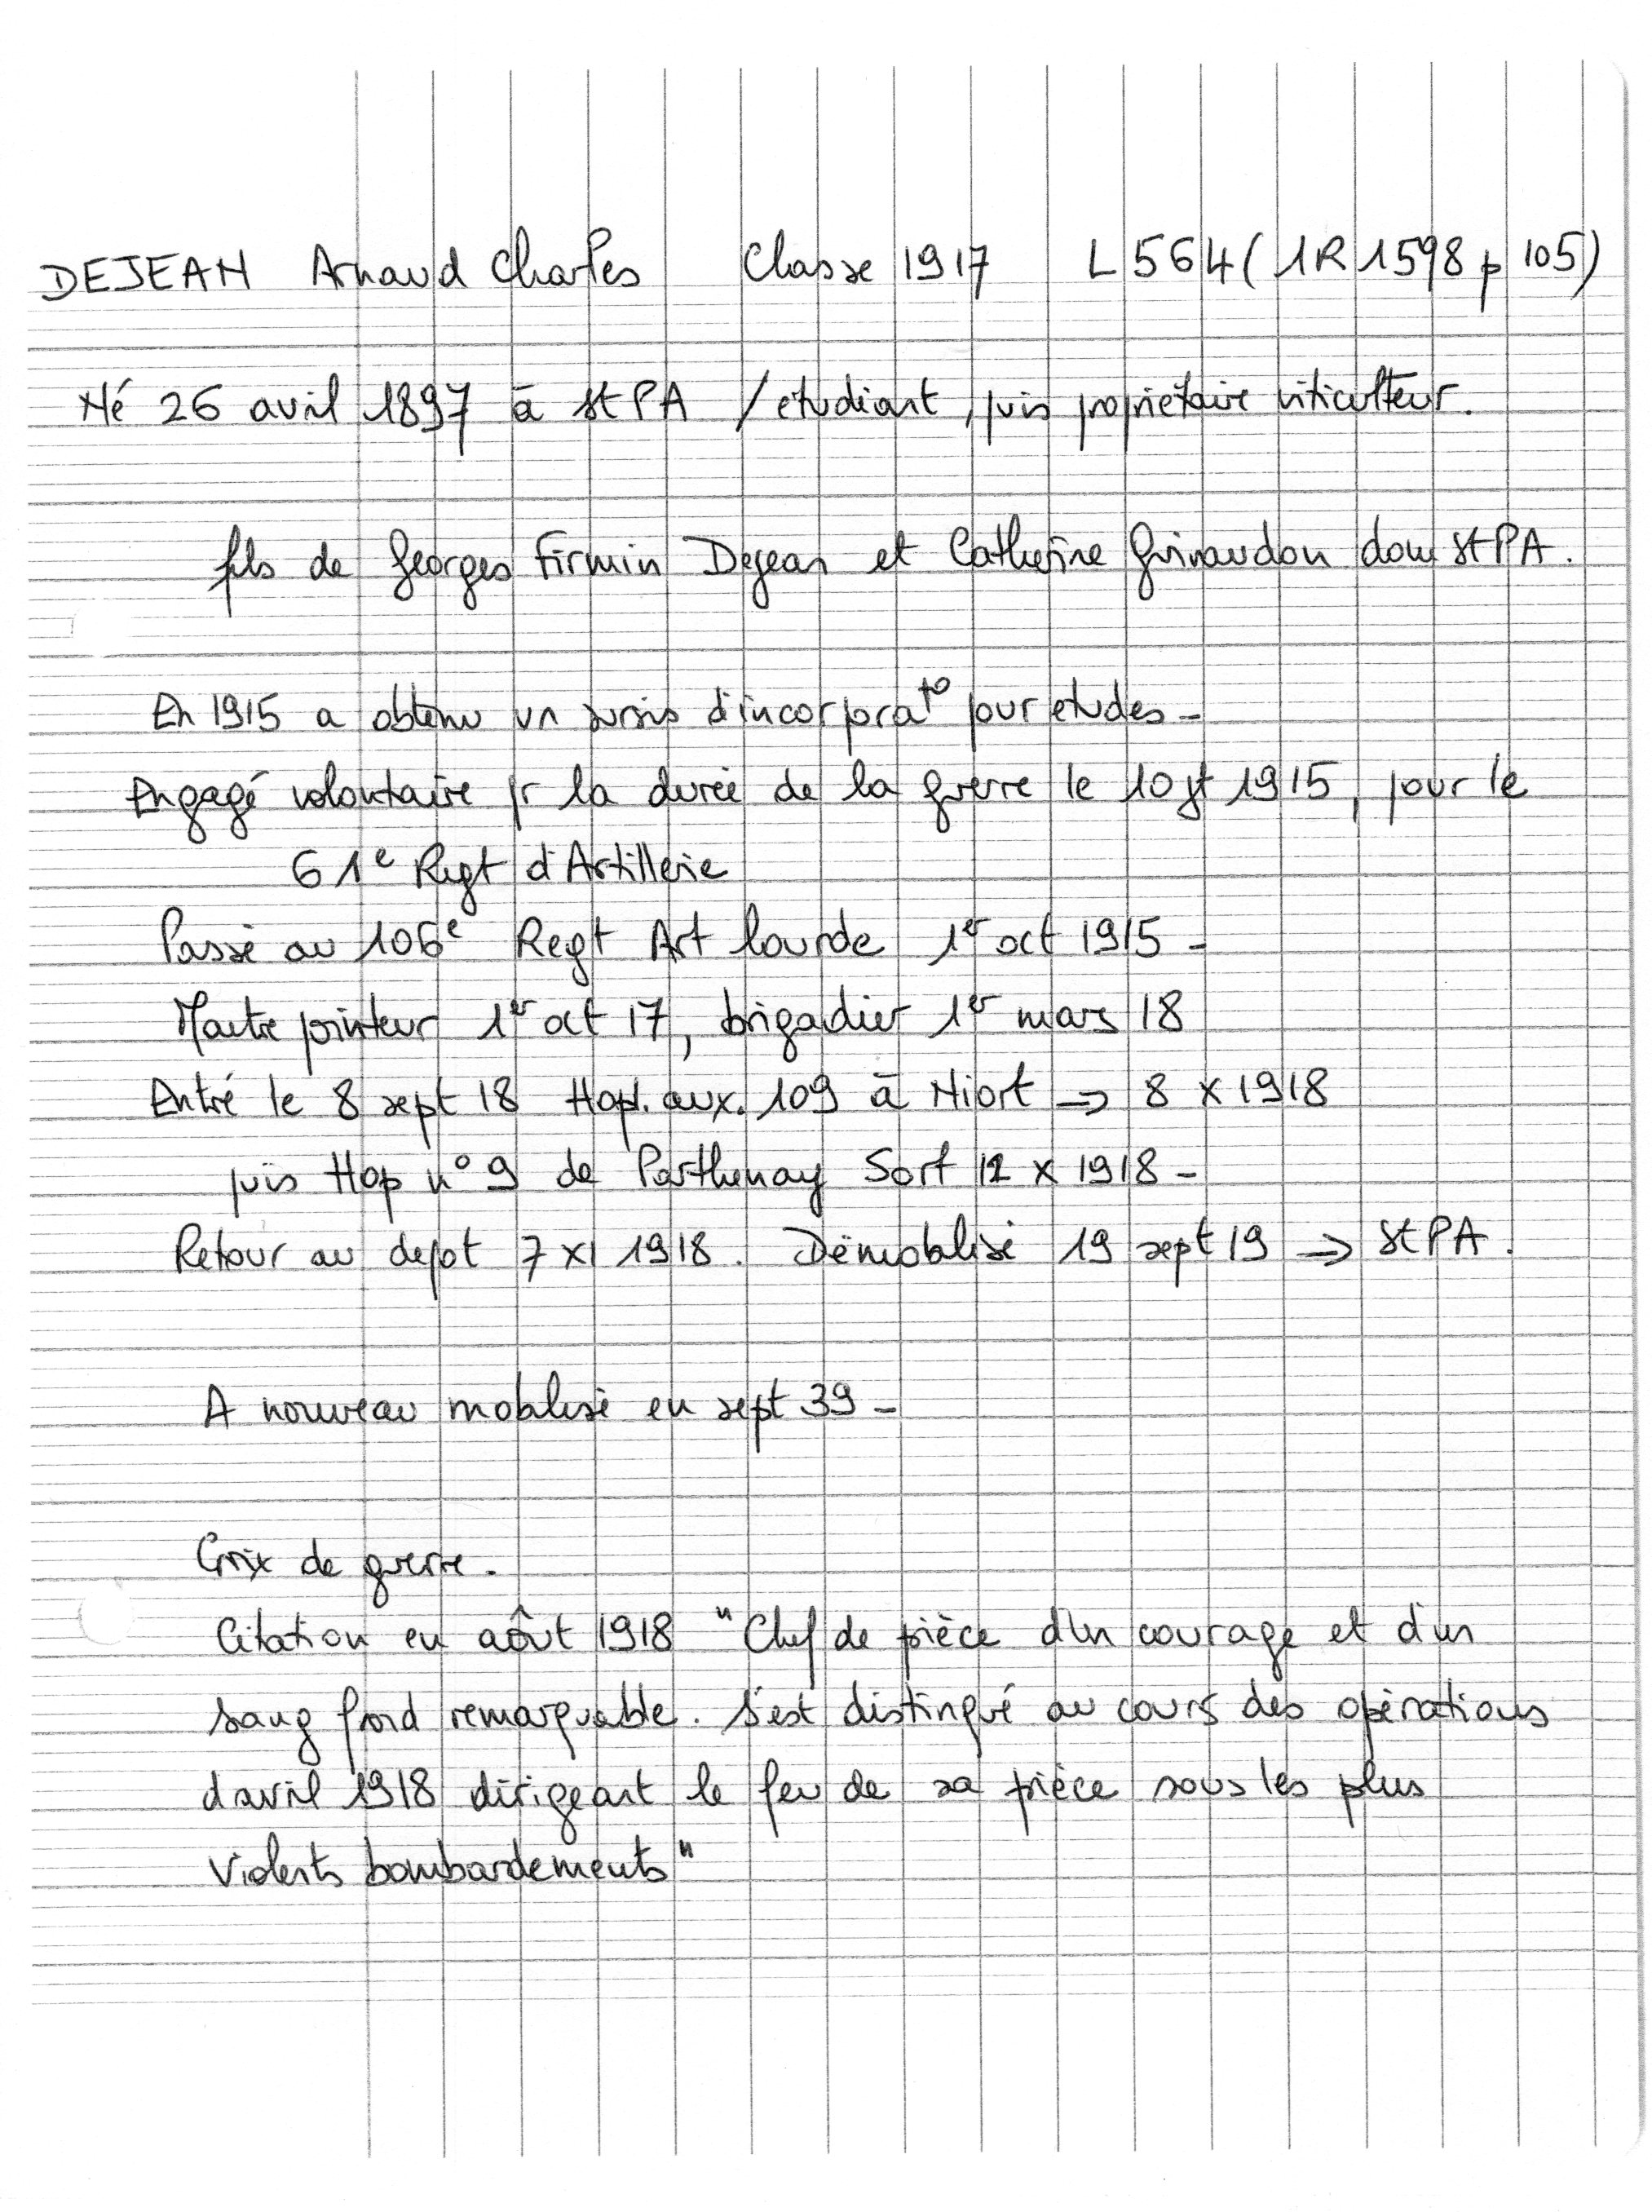 DEJEAN Arnaud Charles Classe 1917 L 564 (1R 1598 p 105)
Né 26 avril 1897 à St PA / etudiant, puis proprietaire viticulteur.
fils de Georges Firmin Dejean et Catherine Grinaudon dom St PA.
En 1915 a obtenu un sursis d'incorporat° pour etudes -
Engagé volontaire pr la durée de la guerre le 10 1915, pour le
61e Regt d'Artillerie
Passé au 106e Regt Art lourde 1er oct 1915 -
Maitre pointeur 1er oct 17, brigadier 1er mars 18
Entré le 8 sept 18 Hop. aux. 109 à Niort => 8 X 1918
puis Hop n° 9 de Parthenay Sort 12 X 1918 -
Retour au depot 7 XI 1918. Démobilisé 19 sept 19 => St PA.
A nouveau mobilisé en sept 39 -
Croix de guerre.
Citation en août 1918 "Chef de pièce d'un courage et d'un
sang froid remarquable. S'est distingué au cours des opérations
d'avril 1918 dirigeant le feu de sa pièce sous les plus
violents bombardements"